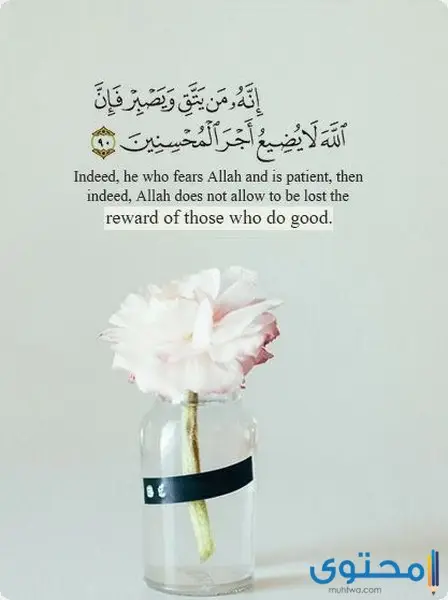 إِنَّهُۥ مَن يَتَّقِ وَيَصۡبِرۡ فَإِنَّ
ٱللَّهَ لَا يُضِيعُ أَجۡرَ ٱلۡمُحۡسِنِينَ ٩٠
Indeed, he who fears Allah and is patient, then
indeed, Allah does not allow to be lost the
reward of those who do good.
محتوى
muhtwa.com